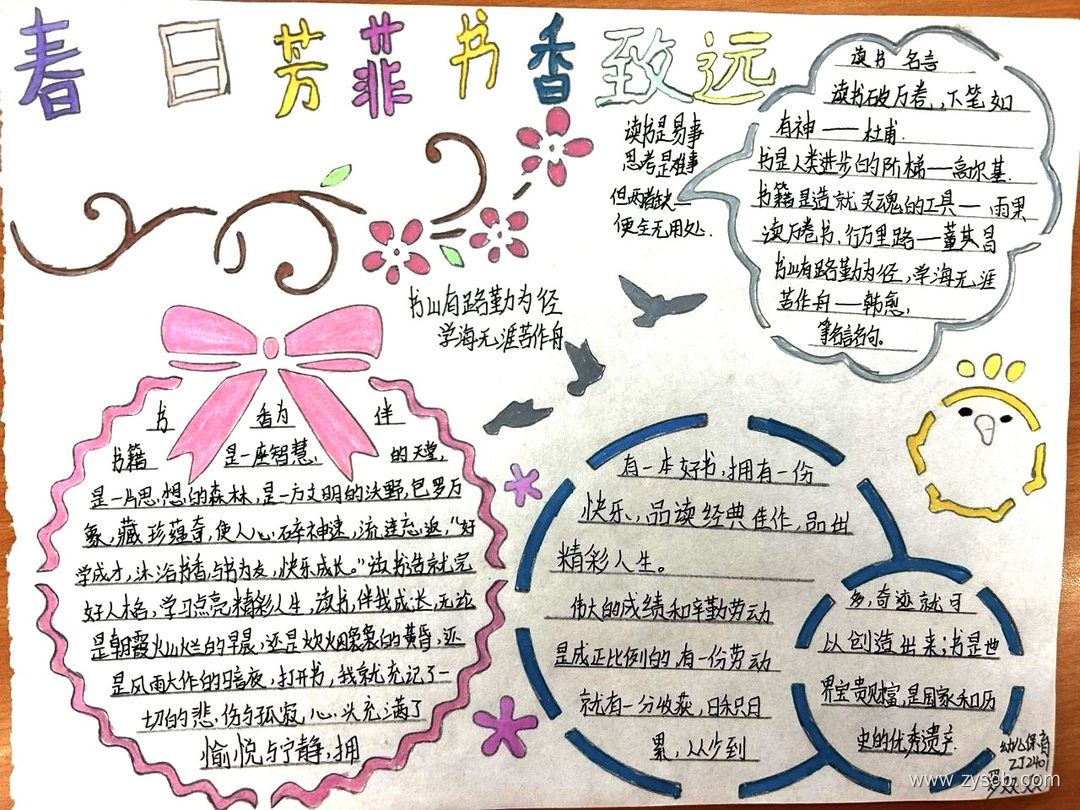 春日芳菲书香致远
读书是易事
思考是难事
但两者缺一
便全无用处.
读书名言
读书破万卷,下笔如
有神——杜甫.
书是人类进步的阶梯——高尔基.
书籍是造就灵魂的工具—雨果
读万卷书,行万里路—董其昌
书山有路勤为径,学海无涯
苦作舟——韩愈,
等名言名句。
书山有路勤为径
学海无涯苦作舟
书香为伴
书籍是一座智慧,的天堂,
是一片思想的森林,是一方文明的沃野,包罗万
象,藏珍蕴奇,使人心碎神迷,流连忘返,“好
学成才,沐浴书香,与书为友,快乐成长。”读书造就完
好人格,学习点亮精彩人生,读书,伴我成长,无论
是朝霞灿烂的早晨,还是炊烟袅袅的黄昏,还
是风雨大作的暗夜,打开书,我就忘记了一
切的悲伤与孤寂,心头充满了
愉悦与宁静,拥
有一本好书,拥有一份
快乐,品读经典佳作,品出
精彩人生。
伟大的成绩和辛勤劳动
是成正比例的,有一份劳动
就有一分收获,日积月
累,从少到
多,奇迹就可
以创造出来;书是世
界宝贵财富,是国家和历
史的优秀遗产.
幼儿保育
ZJ2401
罗双双
www.zyscb.com